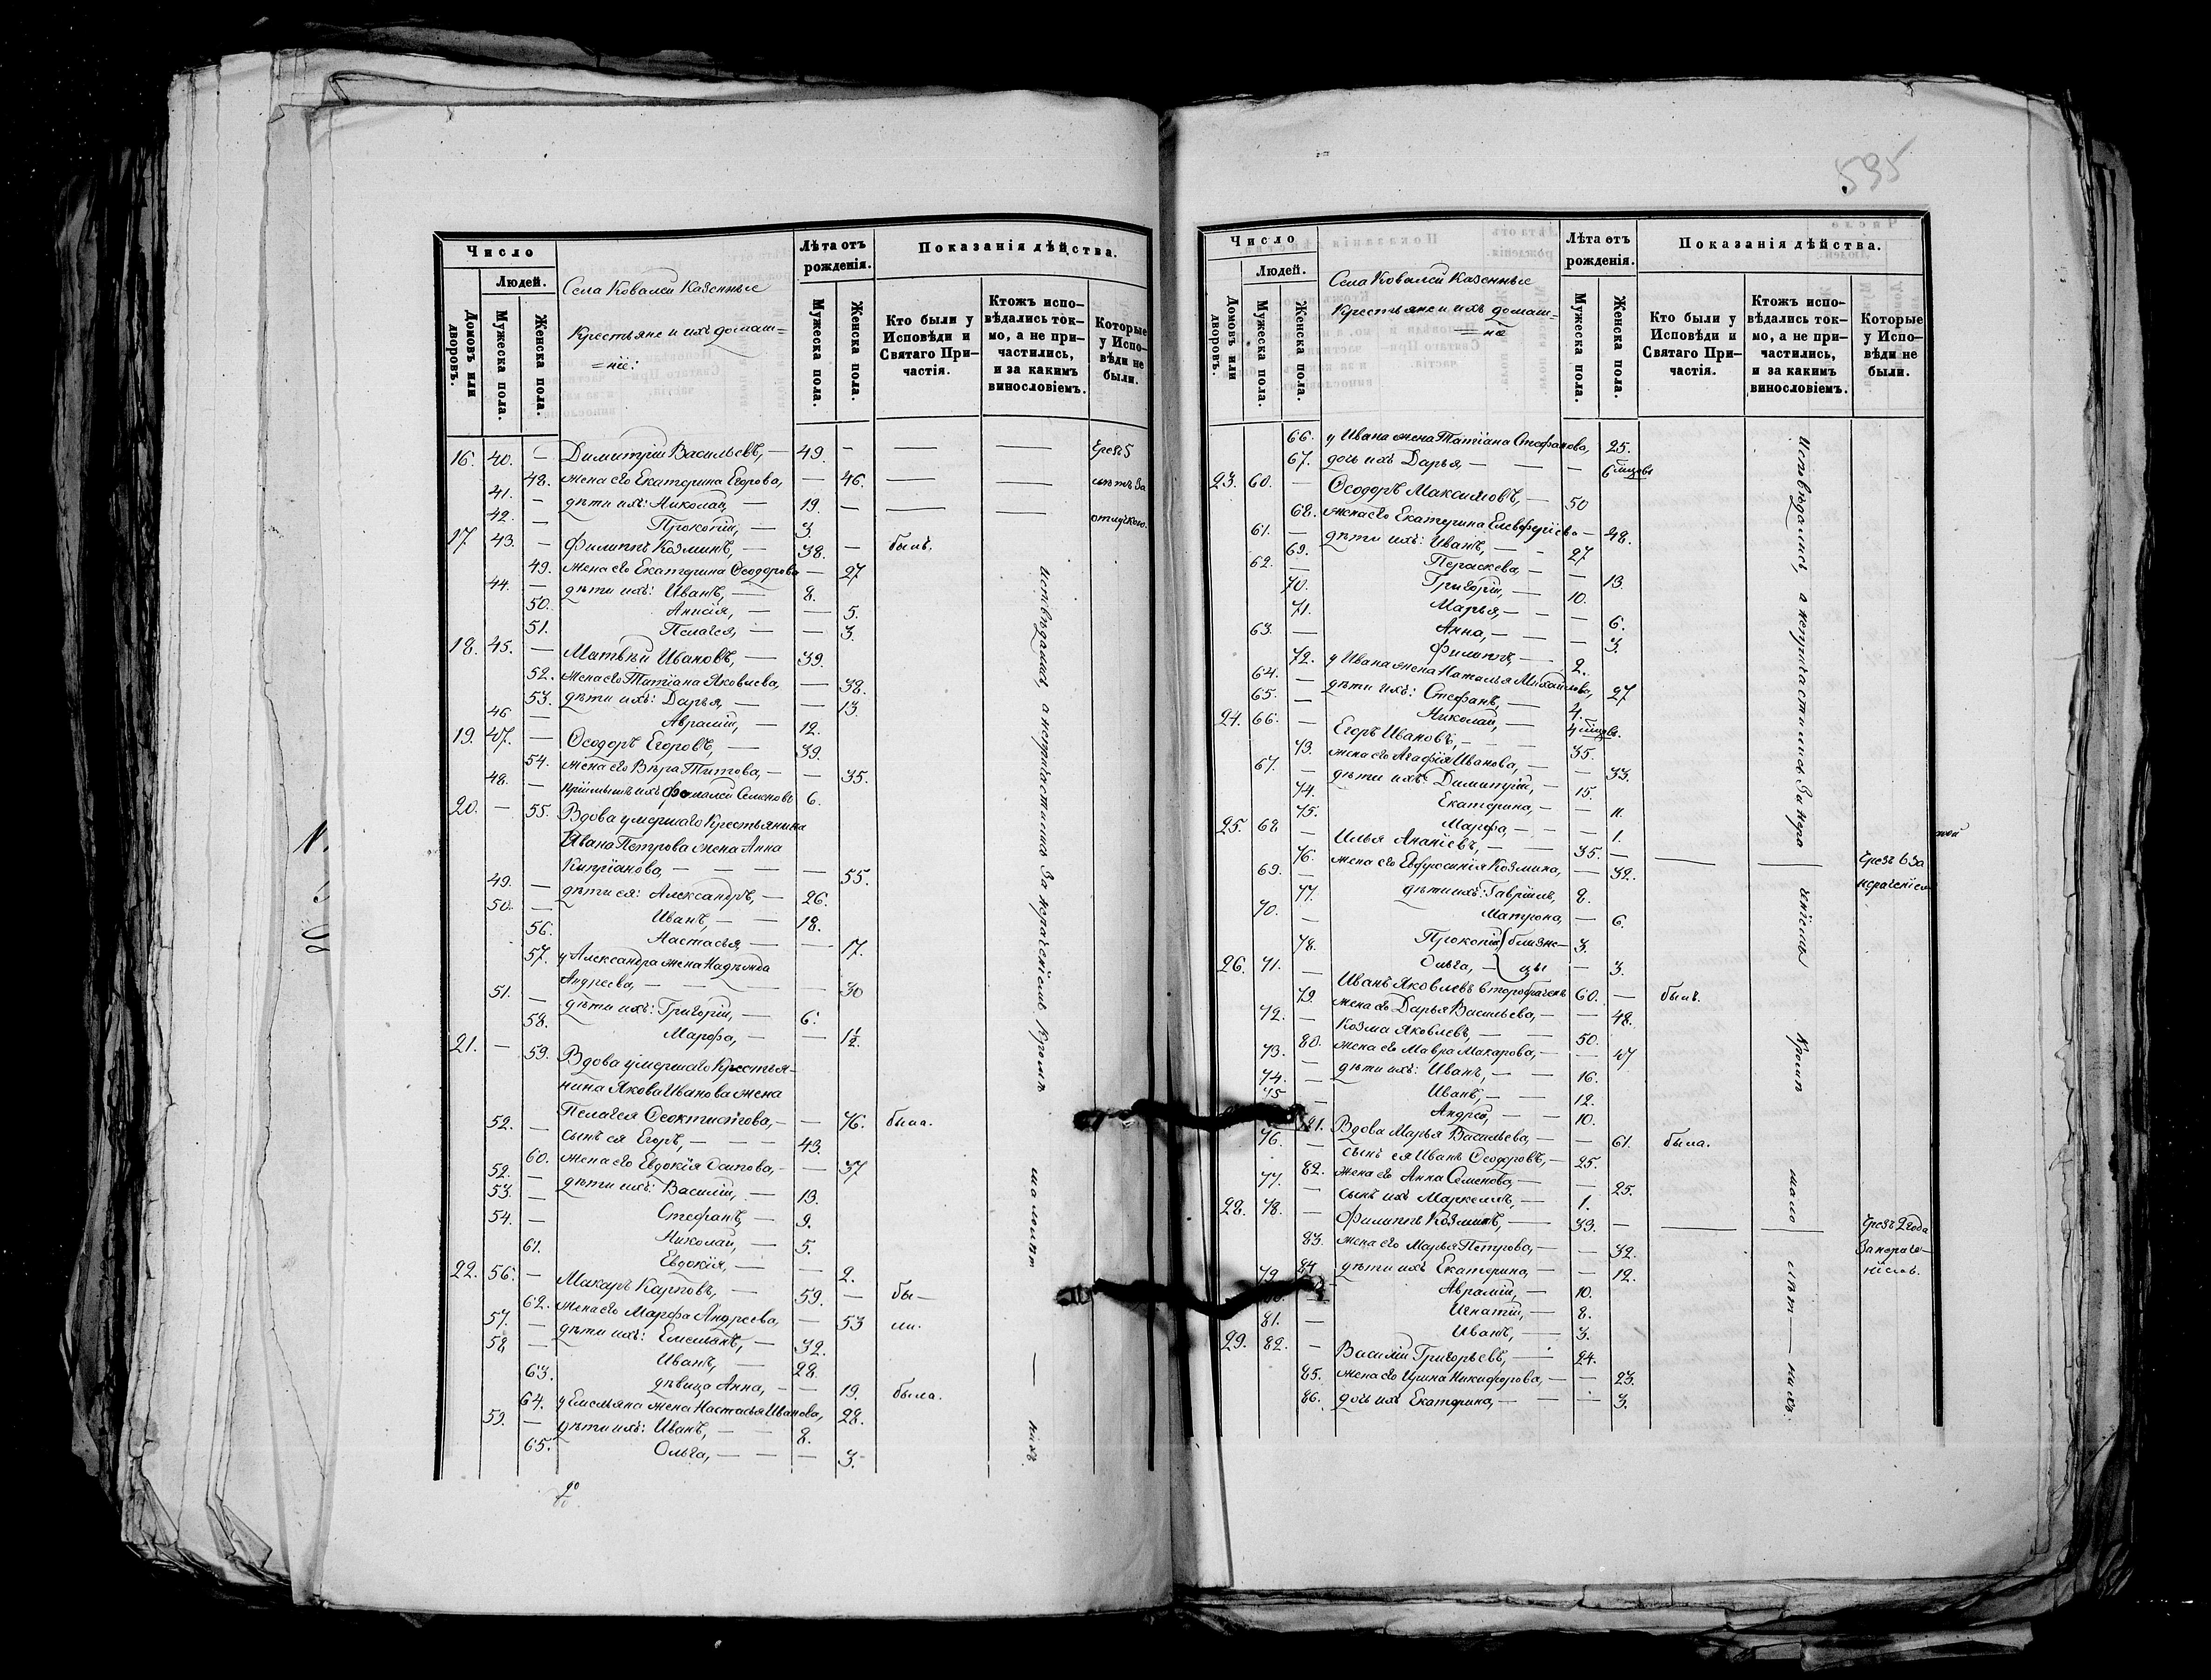 595
Число
Людей.
Домовъ или дворовъ.
Мужеска пола.
Женска пола.
Села Ковалей Казенные
Крестьяне и ихъ домаш=
=ніе:
Лѣта отъ рожденія.
Мужеска пола.
Женска пола.
Показанія дѣйства.
Кто были у Исповѣди и Святаго Причастія.
Ктожъ исповѣдались токмо, а не причастились, и за какимъ винословіемъ.
Которые у Исповѣди не были.
16. 40. — Димитрій Васильевъ, — 49. — — — Чрезъ 5
48. жена его Екатерина Егорова, — 46. — — лѣтъ за
41. — дѣти ихъ: Николай, — 19. — — — отлучкою.
42. — Прокопій, — 3.
17. 43. — Филиппъ Козминъ, — 38. — былъ.
49. жена его Екатерина Ѳеодорова — 27
44. — дѣти ихъ: Иванъ, — 8.
50. Анисія, — — 5.
51. Пелагея, — — 3.
18. 45. — Матвѣй Ивановъ, — 39.
52. жена его Татіана Яковлева, — 38.
53. дѣти ихъ: Дарья, — — 13.
46 — Аврамій, — 12.
19. 47. — Ѳеодоръ Егоровъ, — 39.
54. жена его Вѣра Титова, — — 35.
48. — пріймышъ ихъ Семеновъ 6.
20. — 55. Вдова умершаго Крестьянина
Ивана Петрова жена Анна
Кипріанова, — — — — 55.
49. — дѣти ея: Александръ, — 26.
50. — Иванъ, — — 18.
56. Настасья, — — 17.
57. у Александра жена Надѣжда
Андреева, — — — — 30
51. — дѣти ихъ: Григорій, — 6.
58. Марфа, — — 1½.
21. — 59. Вдова умершаго Крестья-
нина Якова Иванова жена
Пелагея Ѳеоктистова, — — 76. была.
52. — сынъ ея Егоръ, — — — 43.
60. жена его Евдокія Осипова, — — 37
52. — дѣти ихъ: Василій, — 13.
53. — Стефанъ, — 9.
54. — Николай, — 5.
61. Евдокія, — — 2.
22. 56. — Макаръ Карповъ, — 59. — бы—
62. жена его Марфа Андреева, — 53 ли.
57. — дѣти ихъ: Емельянъ, — 32.
58 — Иванъ, — 28.
63. дѣвица Анна, — — 19. была.
64. у Емельяна жена Настасья Иванова, 28.
59. — дѣти ихъ: Иванъ, — — 8.
65. Ольга, — — — 3.
исповѣдались, а непричастились за нераченіемъ. Кромѣ малолѣт — нихъ.
Число
Людей.
Домовъ или дворовъ.
Мужеска пола.
Женска пола.
Села Ковалей Казенные
Крестьяне и ихъ домаш=
=ніе
Лѣта отъ рожденія.
Мужеска пола.
Женска пола.
Показанія дѣйства.
Кто были у Исповѣди и Святаго Причастія.
Ктожъ исповѣдались токмо, а не причастились, и за какимъ винословіемъ.
Которые у Исповѣди не были.
66. у Ивана жена Татіана Стефанова, 25.
67. дочь ихъ Дарья, — — — 6 мцовъ
23. 60. — Ѳеодоръ Максимовъ, — 50
68. жена его Екатерина Елевферіева — 48.
61. — дѣти ихъ: Иванъ, — — 27
69. Параскева, — — 13.
62. — Григорій, — 10.
70. Марья, — — 6.
71. Анна, — — 3.
63. — Филиппъ, — 2.
72. у Ивана жена Наталья Михайлова, 27
64. — дѣти ихъ: Стефанъ, — 4.
65. — Николай, — 4 мцовъ.
24. 66. — Егоръ Ивановъ, — — 35.
73. жена его Агафія Иванова, — — 33.
67. — дѣти ихъ: Димитрій, — 15.
74. Екатерина, — — 11.
75. Марфа, — — — 1.
25. 68 — Илья Ананіевъ, — — 35. — — — Чрезъ 6 за
76. жена его Евфросинія Козмина, — 32. нераченіем
69. — дѣти ихъ: Гавріилъ, 8.
77. Матрона, — 6.
70. — Прокопій, близне— 3.
78. Ольга, — цы — 3.
26. 71. — Иванъ Яковлевъ второбраченъ 60. — былъ.
79. жена его Дарья Васильева, — — 48.
72. — Козма Яковлевъ, — — 50.
80. жена его Мавра Макарова, — — 47
73. — дѣти ихъ: Иванъ, — — 16.
74. — Иванъ, — — 12.
75 — Андрей, — — 10.
81. Вдова Марья Васильева, — — 61. была.
76. — сынъ ея Иванъ Ѳеодоровъ, — 25.
82. жена его Анна Семенова, — — 25.
77. — сынъ ихъ Маркелъ, — 1.
28. 78. — Филиппъ Козминъ, — 33. — — — Чрезъ 2 года
83. жена его Марья Петрова, — — 32. за нераче—
84 дѣти ихъ Екатерина, — — 12. ніемъ.
79. Аврамій, — 10.
— Игнатій, — 8.
81. — Иванъ, — 3.
29. 82. — Василій Григорьевъ, — 24.
85. жена его Ирина Никифорова, — — 23.
86. дочь ихъ Екатерина, — — — 3.
Исповѣдались, а непричастились за нера ченіемъ Кромѣ мало лѣт — нихъ.